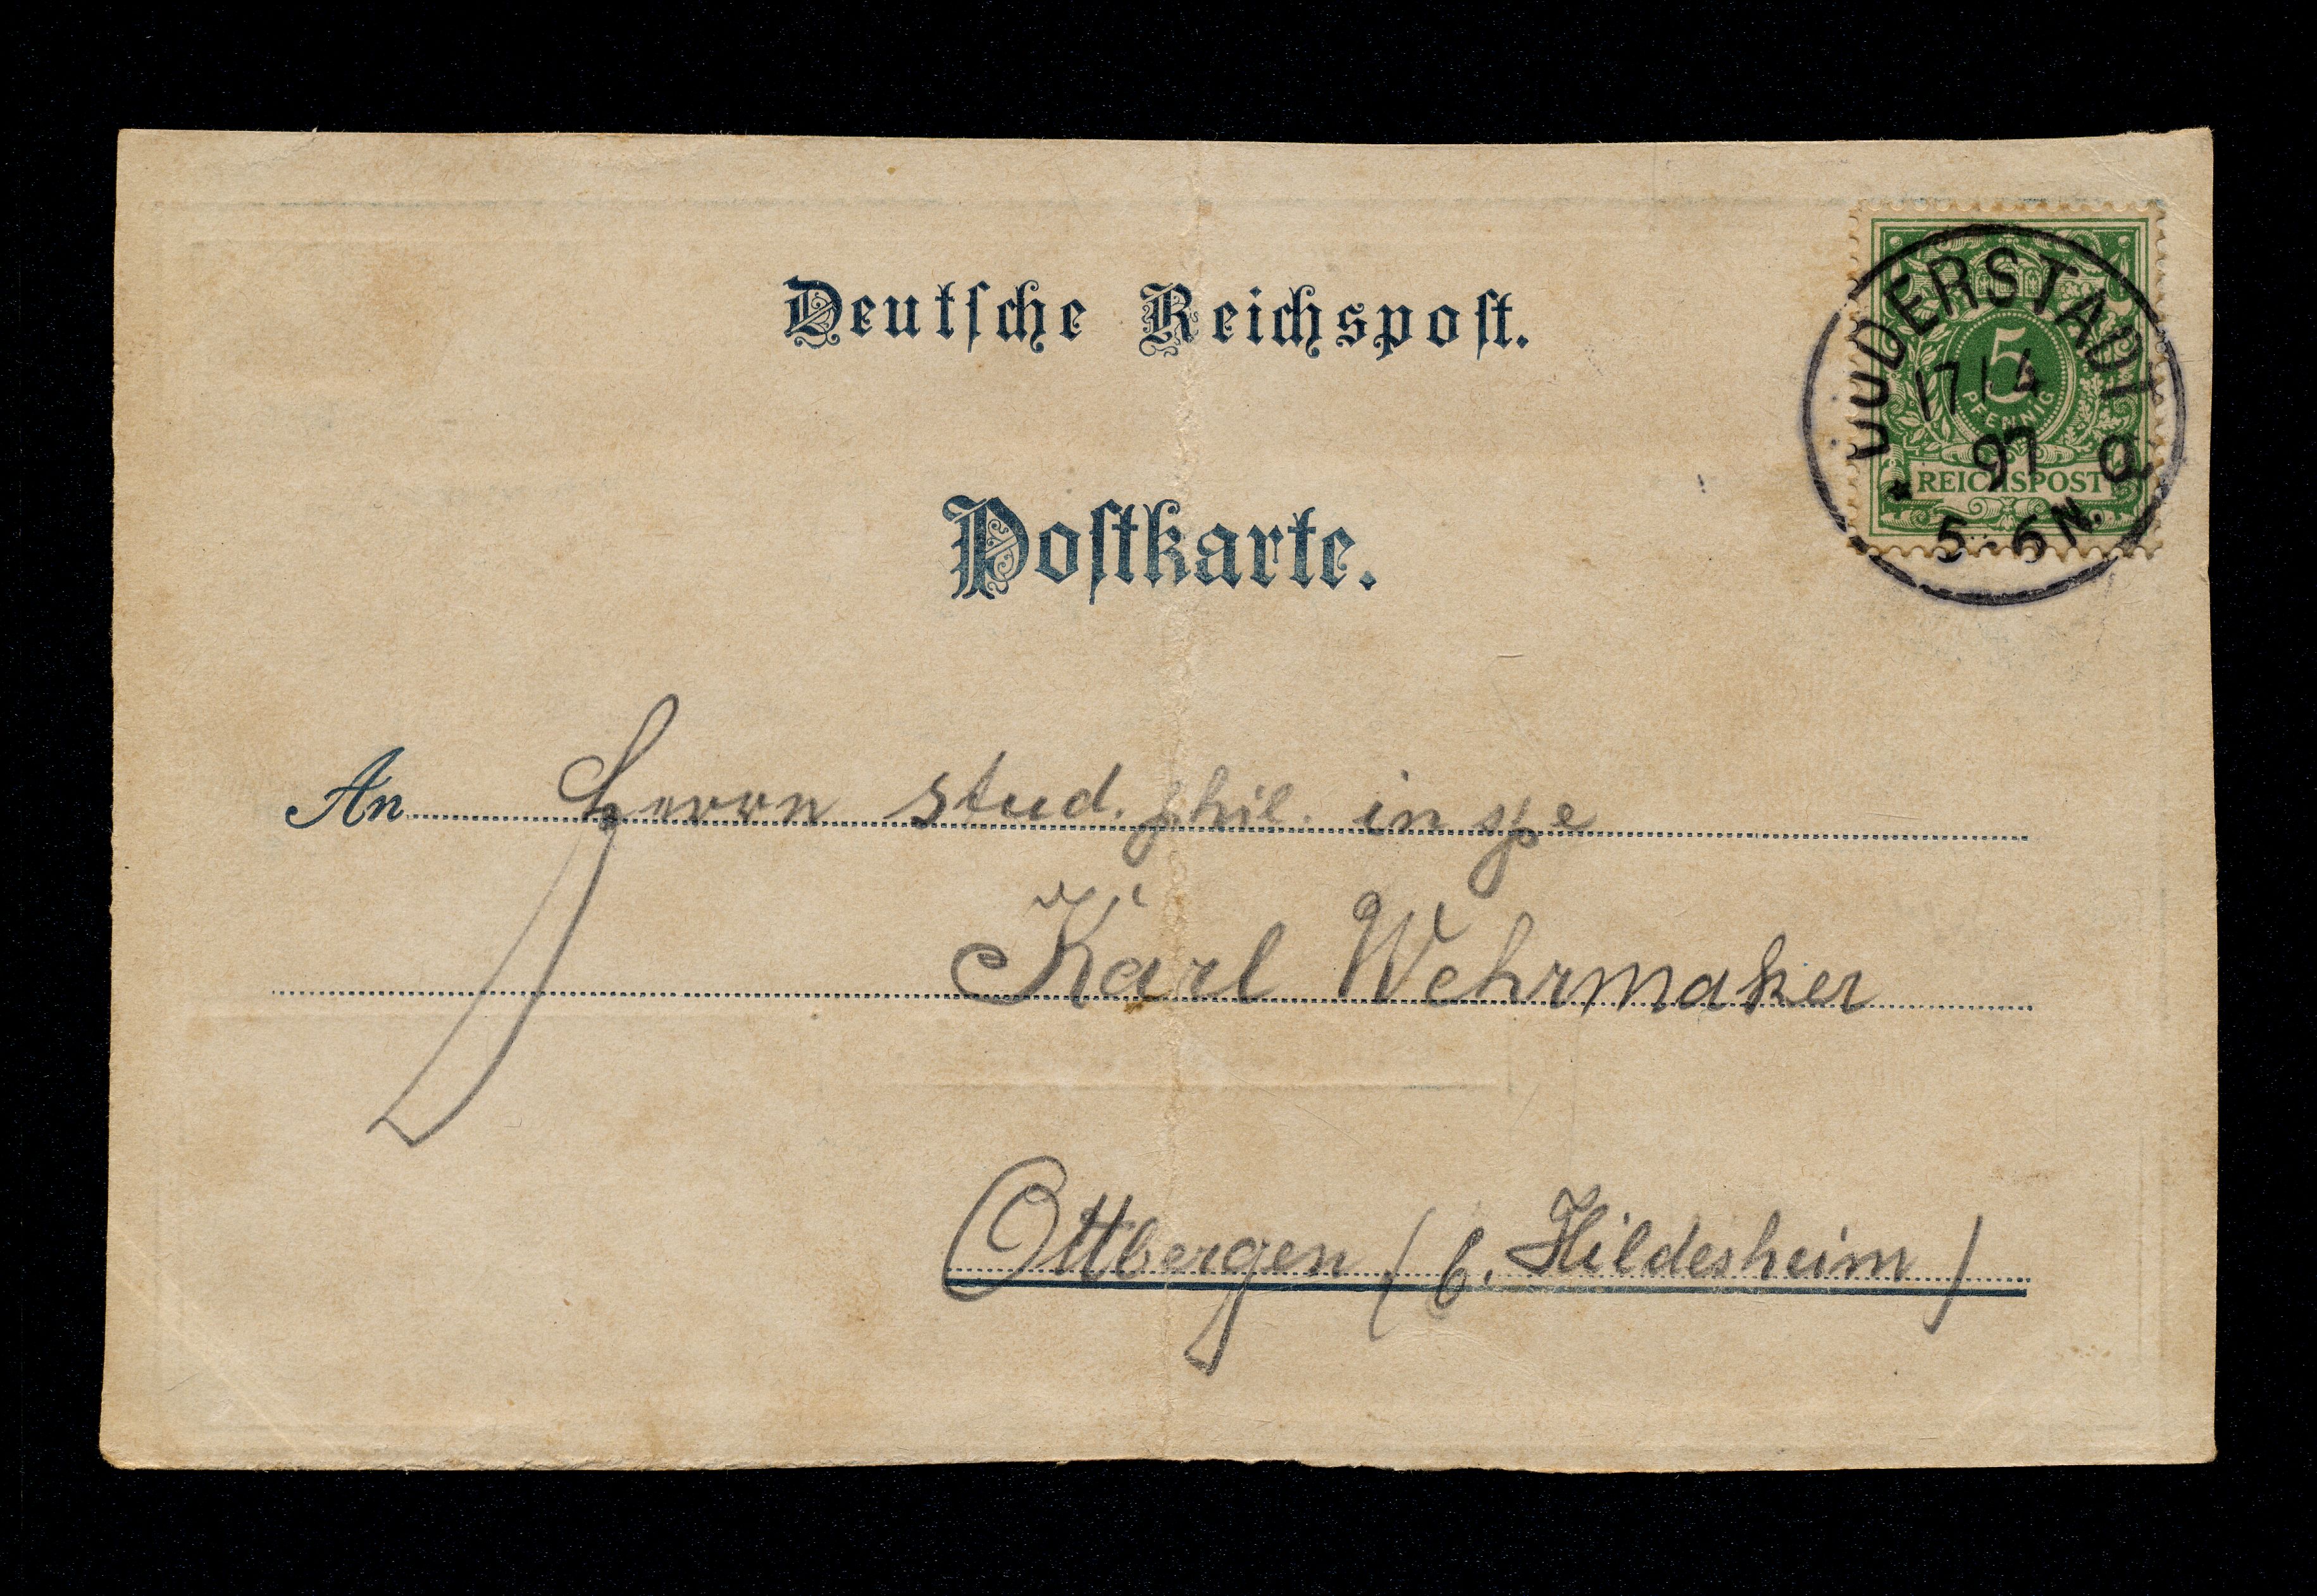 Deutsche Reichspost.
DUDERSTADT
17/4
97
5-6N.
5
PFENNIG
REICHSPOST
Postkarte.
An Herrn stud. phil. in spe
Karl Wehrmaker
Ottbergen (b. Hildesheim)